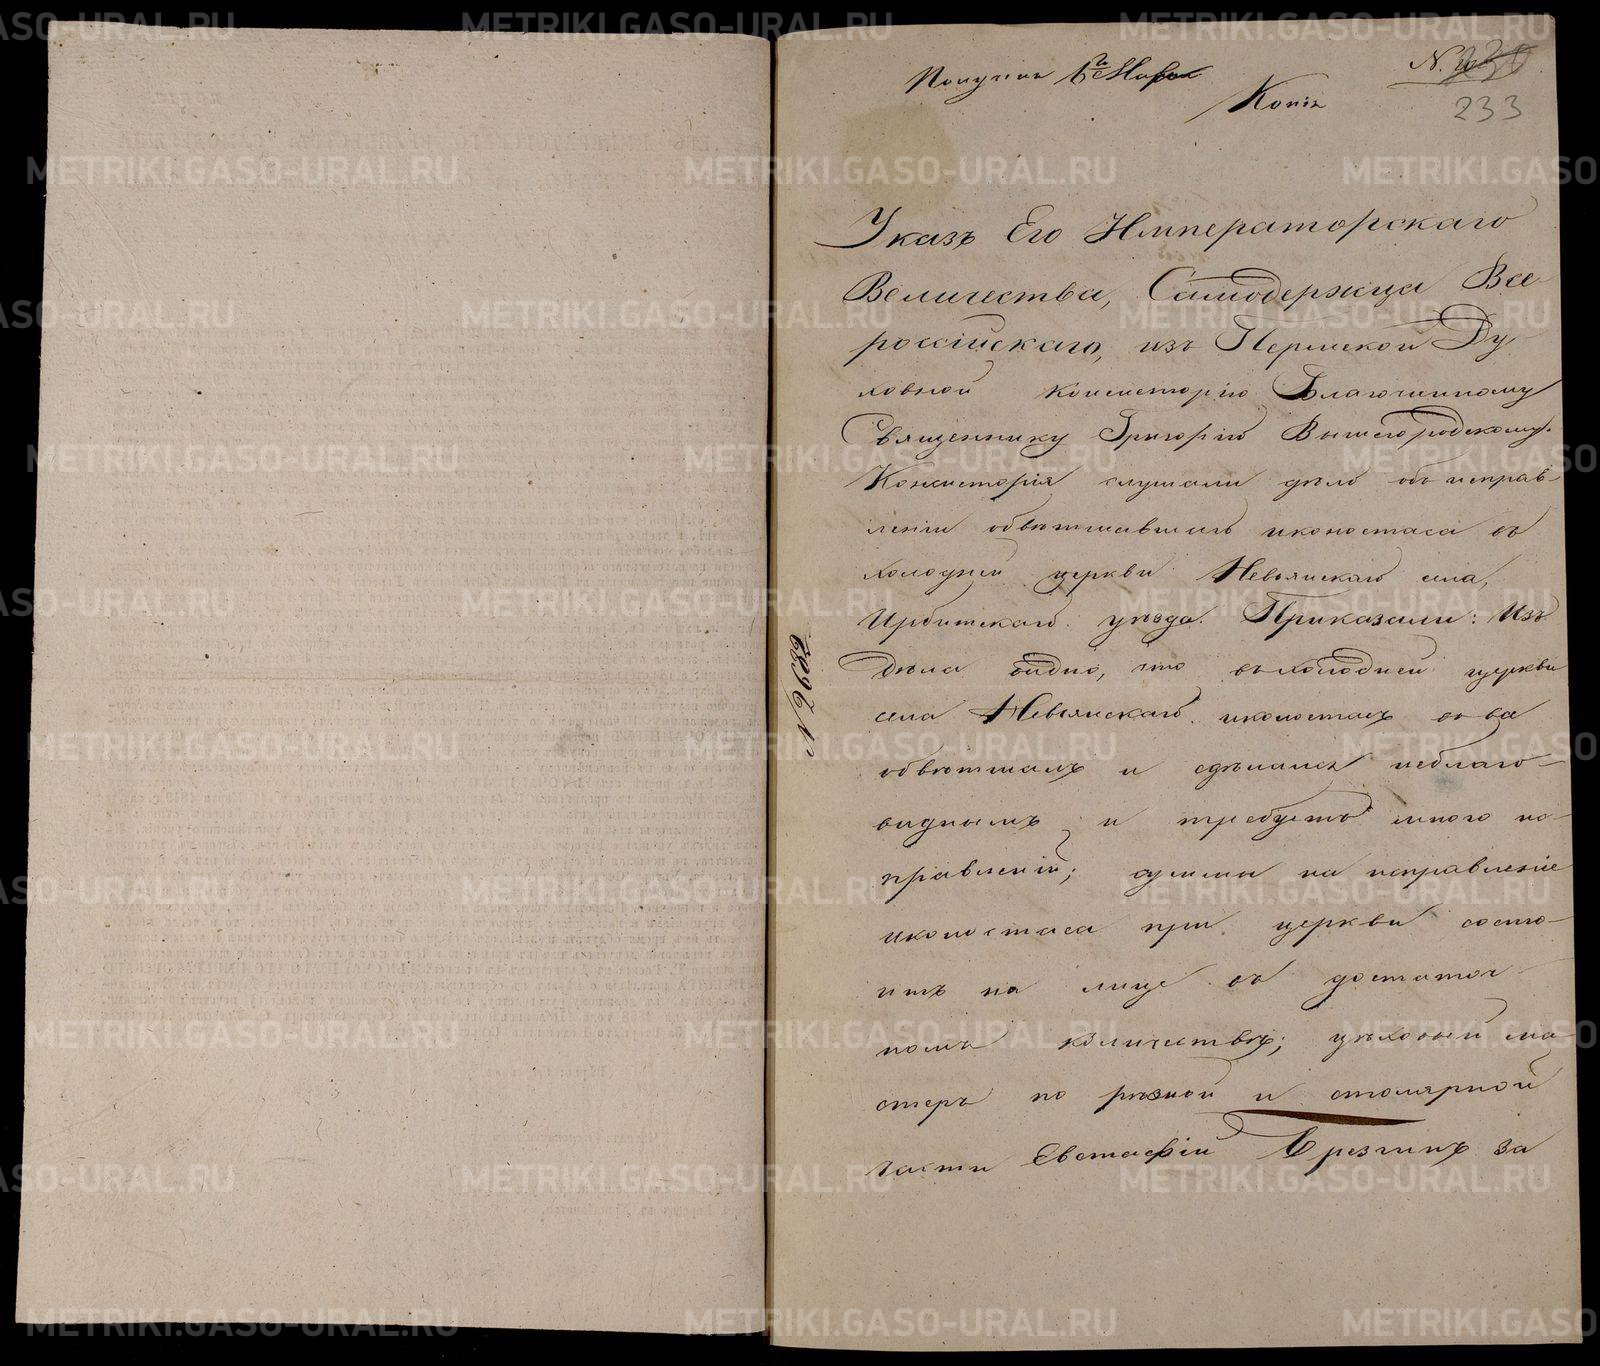 Получена 6
Копія
N.
233
Указъ Его Императорскаго
Величества, Самодержца Все
россійскаго, изъ Пермской Ду
ховной Консисторіи Благочинному
Священнику Григорію Вышегородскому.
Консисторія слушали дѣло объ исправ-
леніи обветшавшаго иконостаса въ
холодной церкви Невьянскаго села,
Ирбитскаго уѣзда. Приказали: Изъ
дѣла видно, что въ холодной церкви
села Невьянскаго иконостасъ
обветшалъ и сдѣлался неблаго-
виднымъ и требуетъ много по-
правленій; сумма на исправленіе
иконостаса при церкви состо-
итъ на лице въ достаточ
номъ количествѣ; цѣховый ма
стеръ по рѣзной и столярной
части Евстафій за
N 2689
METRIKI.GASO-URAL.RU